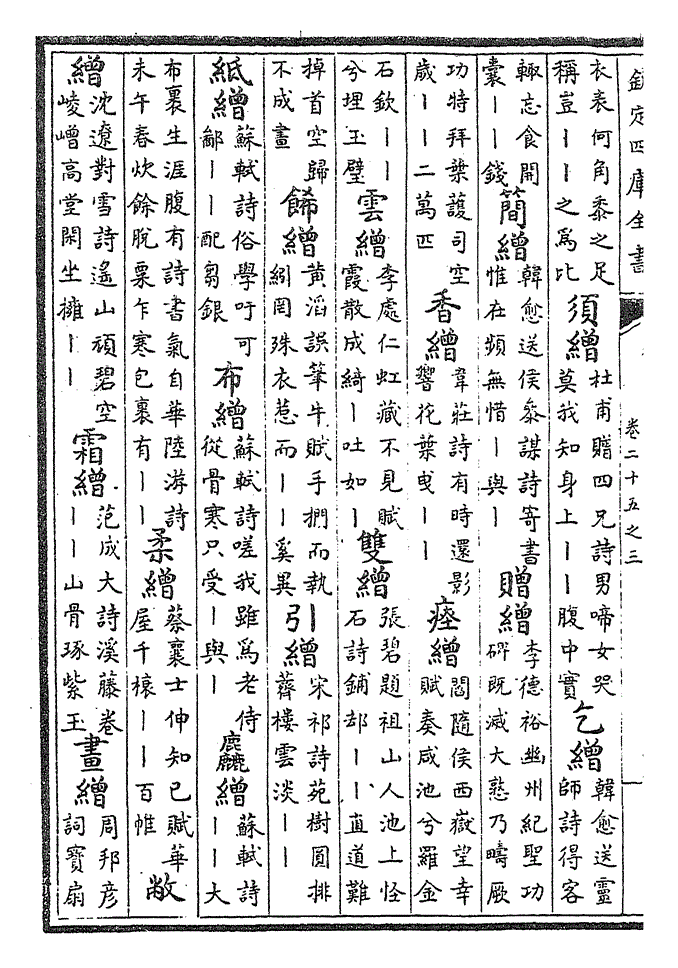 欽定四庫全書
卷二十五之三
衣表何角黍之足
稱豈丨丨之爲比
須繒
杜甫贈四兄詩男啼女哭
莫我知身上丨丨腹中實
乞繒
韓愈送靈
師詩得客
輙忘食開
囊丨丨錢
簡繒
韓愈送侯叅謀詩寄書
惟在頻無惜丨與丨
贈繒
李德裕幽州紀聖功
碑既减大憝乃疇厥
功特拜葉護司空
歲丨丨二萬匹
香繒
韋莊詩有時還影
響花葉曳丨丨
瘞繒
閻隨侯西嶽望幸
賦奏咸池兮羅金
石欽丨丨
兮埋玉璧
雲繒
李處仁虹藏不見賦
霞散成綺丨吐如丨
雙繒
張碧題祖山人池上怪
石詩鋪却丨丨直道難
掉首空歸
不成畫
餙繒
黄滔誤筆牛賦手捫而執
紖罔殊衣惹而丨丨奚異
引繒
宋祁詩苑樹圓排
薺樓雲淡丨丨
紙繒
蘇軾詩俗學吁可
鄙丨丨配芻銀
布繒
蘇軾詩嗟我雖爲老侍
從骨寒只受丨與丨
麤繒
蘇軾詩
丨丨大
布裹生涯腹有詩書氣自華陸游詩
未午春炊餘脫粟乍寒包裹有丨丨
柔繒
蔡襄士伸知己賦華
屋千榱丨丨百帷
敝
繒
沈遼對雪詩遙山頑碧空
崚嶒高堂閑坐擁丨丨
霜繒
范成大詩溪藤卷
丨丨山骨琢紫玉
畫繒
周邦彦
詞寶扇